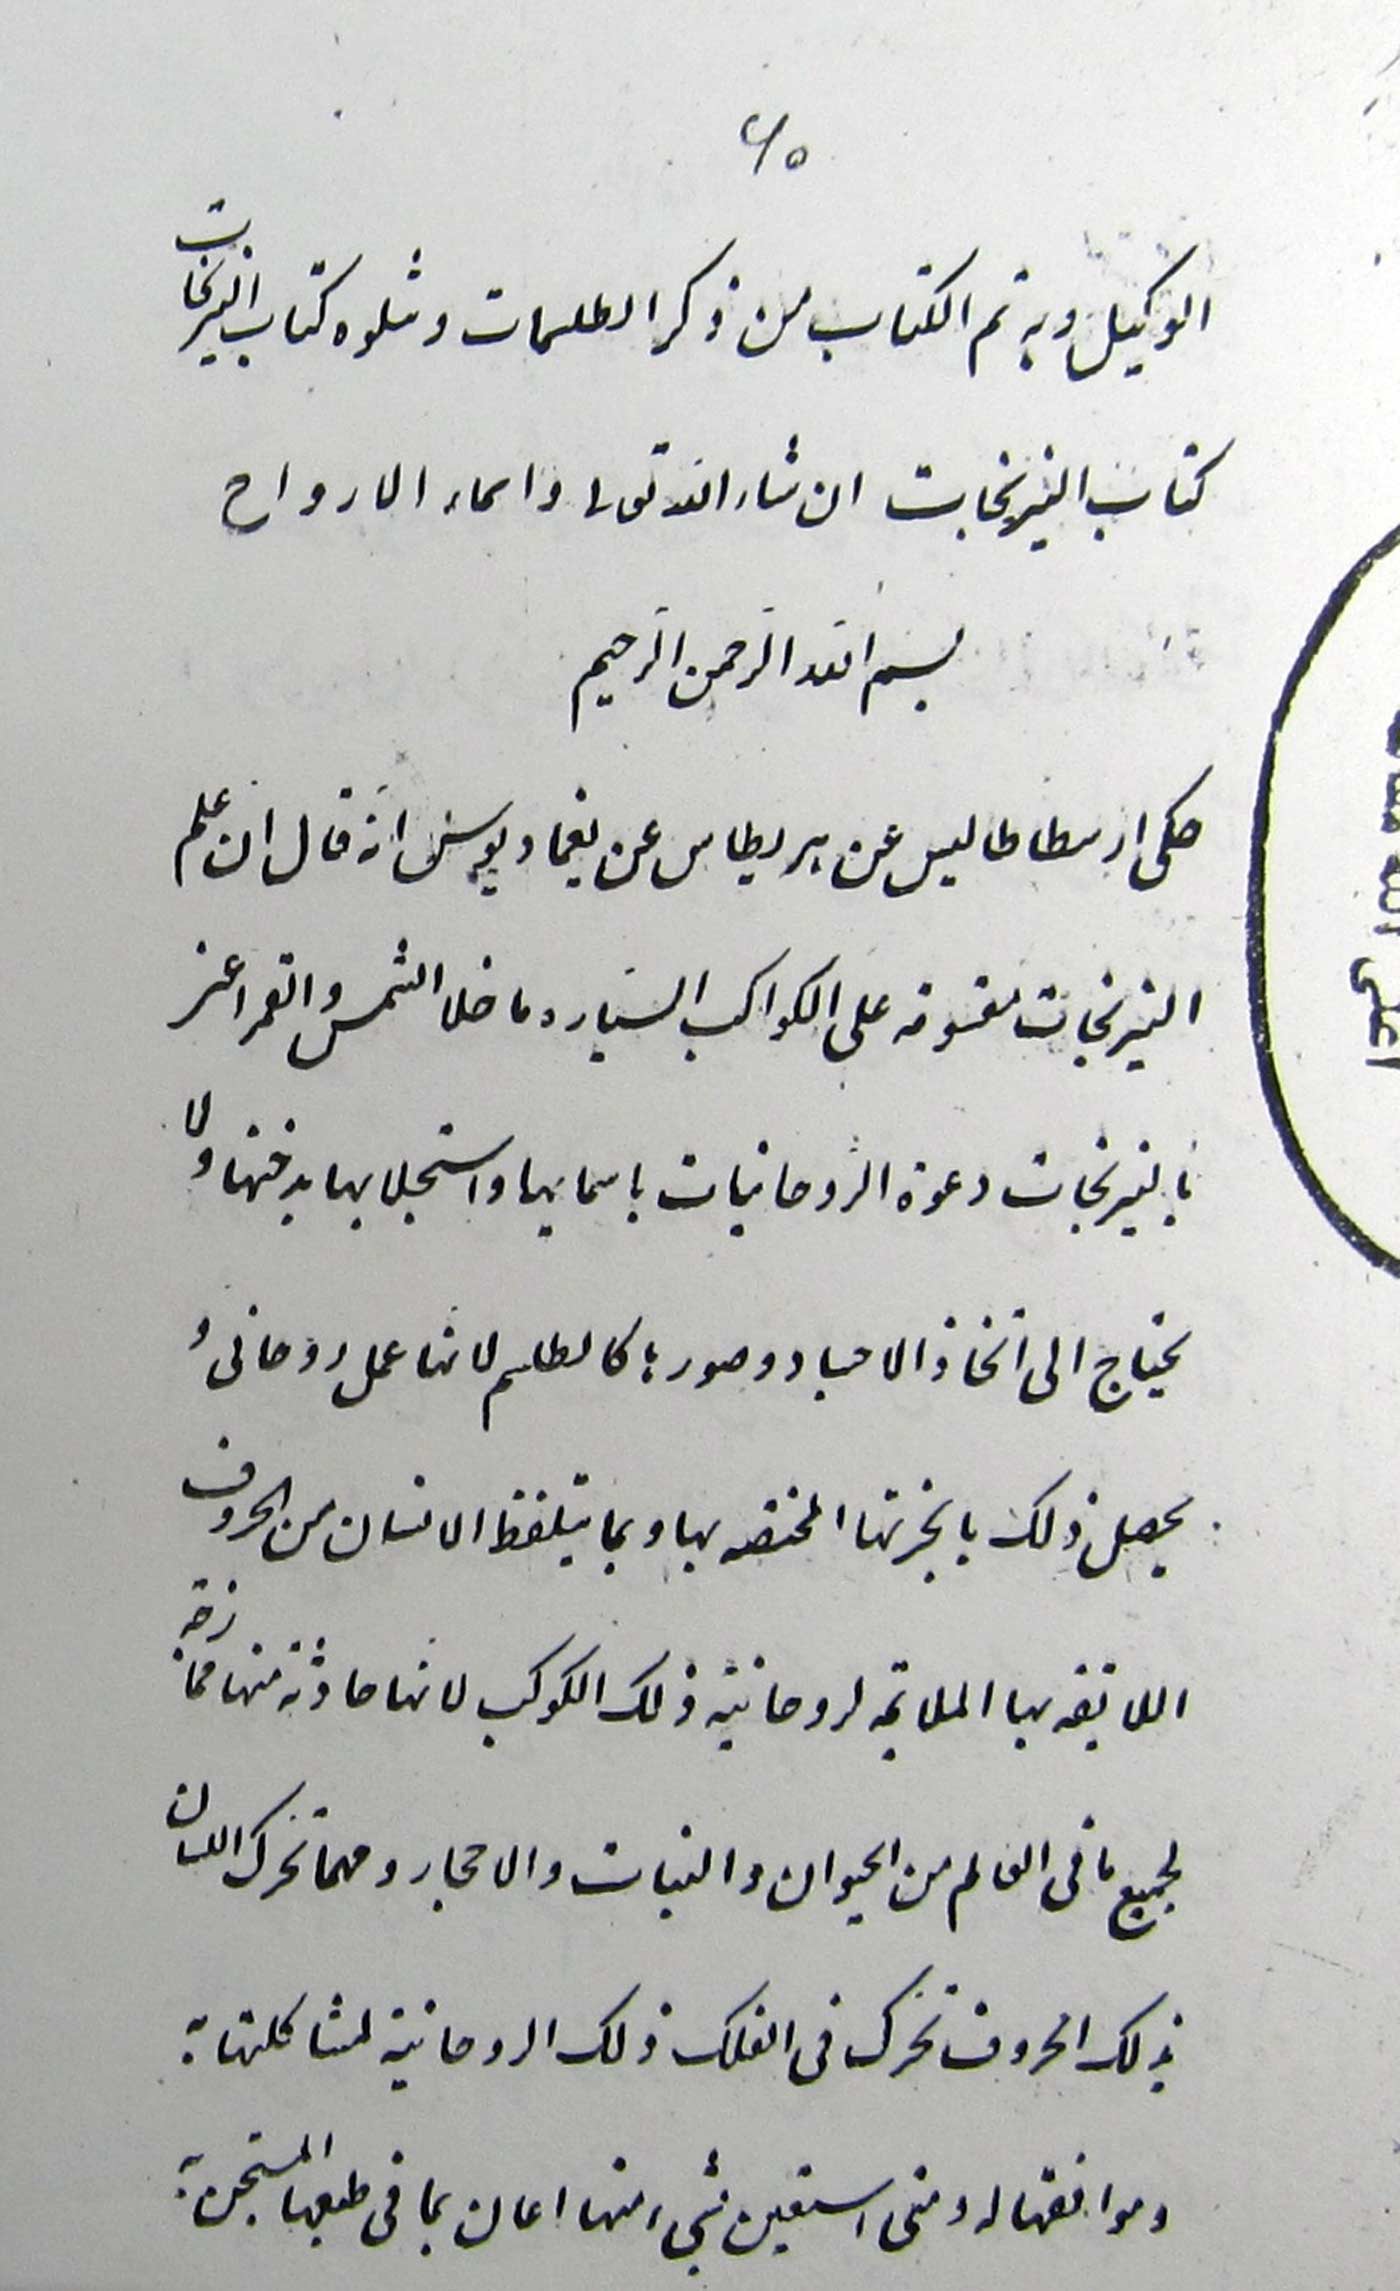 ٤٥
الوكيل وبه تم الكتاب من ذكر الطلسمات وتتلوه كتاب النيرنجات
كتاب النيرنجات ان شاء الله تعالى واسماء الارواح
بسم الله الرحمن الرحيم
حكى ارسطاطاليس عن عن انه قال ان علم
النيرنجات مقسومه على الكواكب السياره ما خلا الشمس والقمر اعنى
بالنيرنجات دعوة الروحانيات باسمايها واستجلابها بدخنها ولا
يحتاج الى اتخاذ الاجساد وصورة كالطلسم لانها عمل روحانى و
يحصل ذلك بابخرتها المختصه بها وبما يتلفظ الانسان من الحروف
اللايقه بها الملايمه لروحانية ذلك الكوكب لانها حادثة منها ممازجه
لجميع ما فى العالم من الحيوان والنبات والاحجار ومهما تحرك اللسان
بذلك الحروف تحرك فى الفلك ذلك الروحانية لمشاكلتها به
وموافقتها له ومتى استعين بشيء منها اعان بما فى طبعها المستجن به